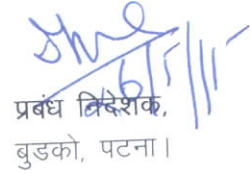 प्रबंध निदेशक,
बुडको, पटना।